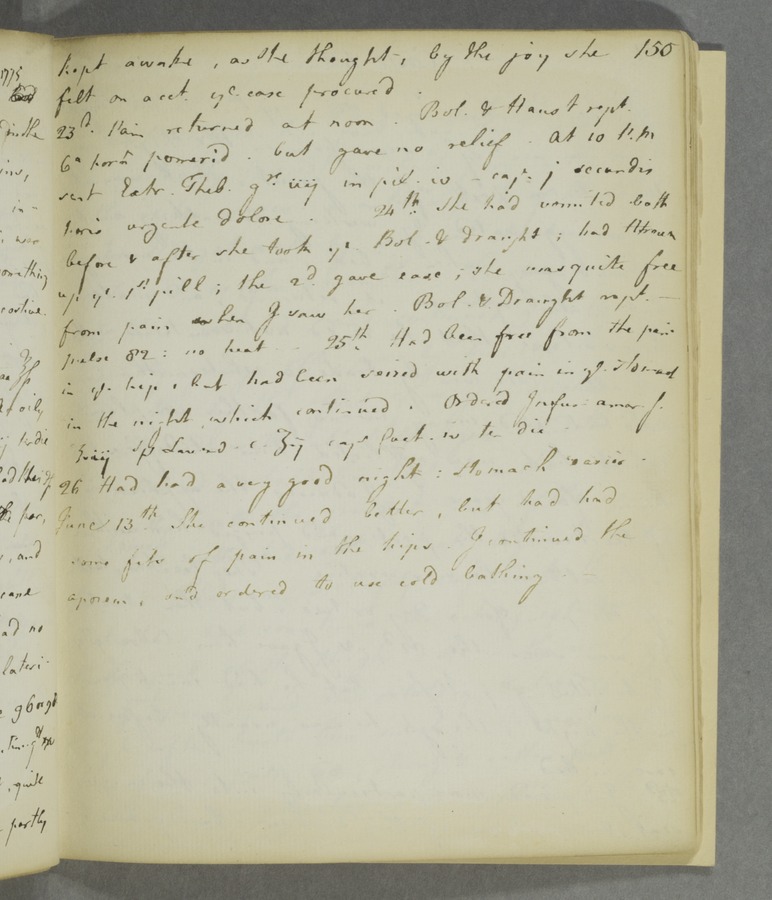 150
kept awake, as she thought, by the joy she
felt on acct. ye. ease procured.
23d. Pain returned at noon. Bol. & Haust rept.
6a horâ pomerid. but gave no relief. At 10 P.M
sent Extr. Theb. grs. iiij in pil. iv - cap. j secundis
horis urgente dolore. 24th. She had vomited both
before & after she took ye Bol. & draught; had thrown
up ye. 1st pill; the 2d. gave ease; she was quite free
from pain when I saw her. Bol. & Draught rept. —
pulse 82: no heat. 25th. Had been free from the pain
in ye. hip, but had been seized with pain in ye. stomach
in the night, which continued. Ordered Infus. amar. f.
Sp. Lavend. c. cap. ter die
26 Had had a very good night: stomach easier.
June 13th She continued better, but had had
some fits of pain in the hips. I continued the
apozem, and ordered to use cold bathing. —
1775
in -
was
something
costive.
oily
had the
the par,
, and
had no
lateri-
, quite
partly